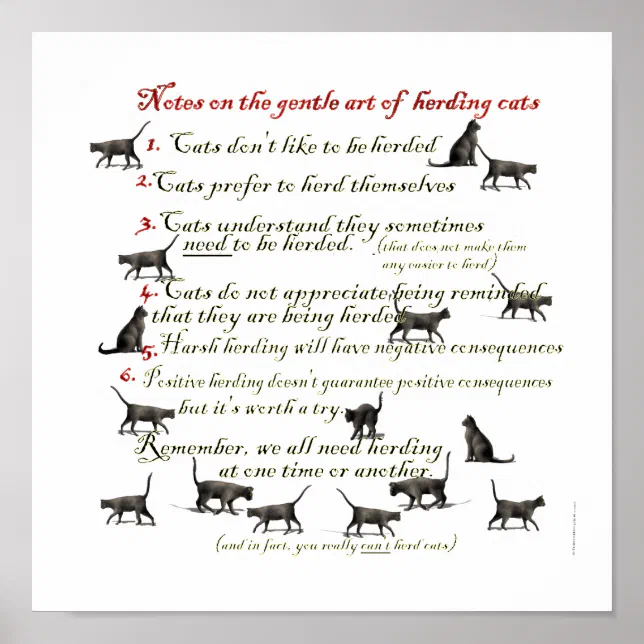 Notes on the gentle art of herding cats
1. Cats don't like to be herded
2. Cats prefer to herd themselves
3. Cats understand they sometimes
need to be herded. (that does not make them
any easier to herd)
4. Cats do not appreciate being reminded
that they are being herded
5. Harsh herding will have negative consequences
6. Positive herding doesn't guarantee positive consequences
but it's worth a try.
Remember, we all need herding
at one time or another.
(and in fact, you really can't herd cats)